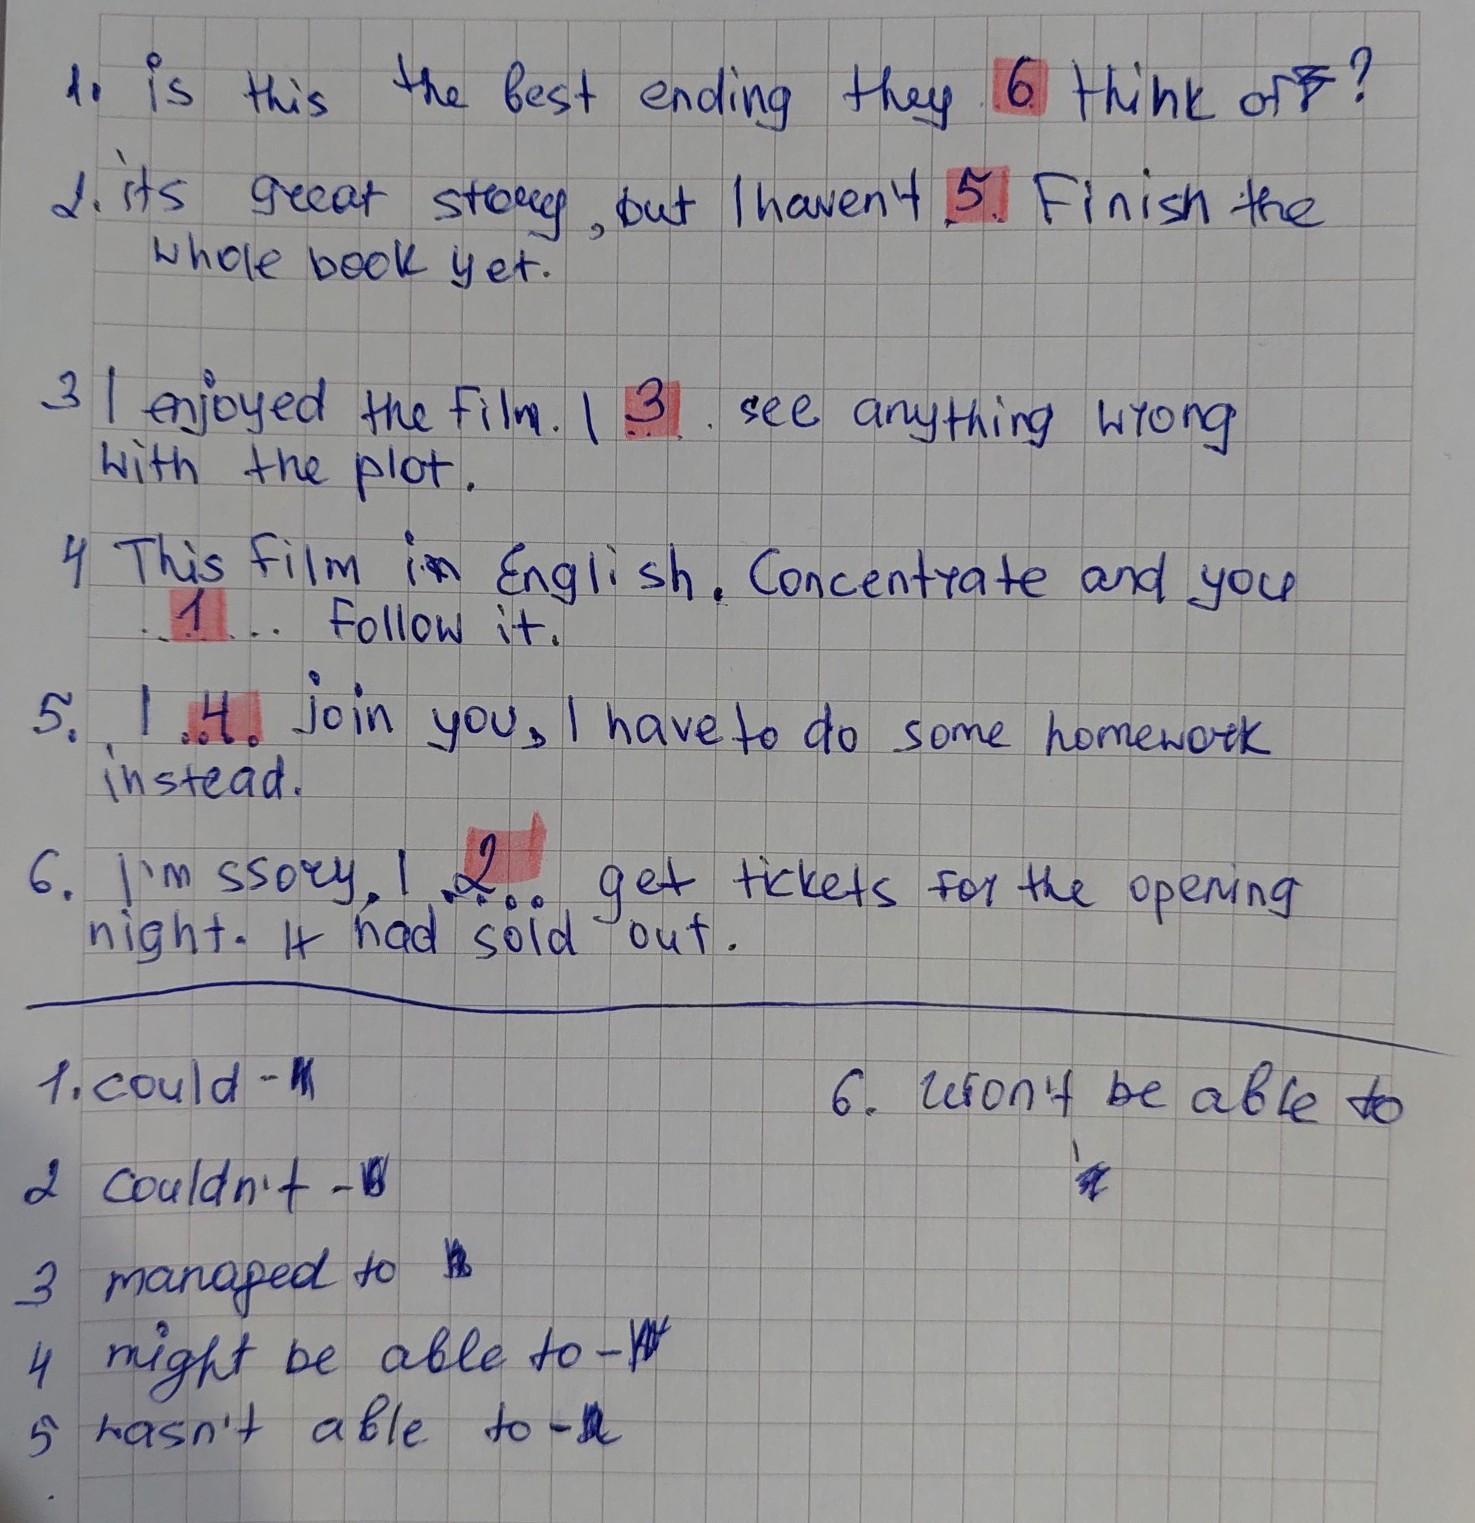 1. is this the best ending they 6 think of?
2. it's great story, but I haven't .5. Finish the
whole book yet.
3 I enjoyed the film. I .3. . see anything wrong
with the plot.
4 This film in English. Concentrate and you
..1... follow it.
5. I .4. join you, I have to do some homework
instead.
6. I'm ssory. I .2... get tickets for the opening
night. It had sold out.
1. could -
6. won't be able to
2 couldn't -
3 managed to
4 might be able to -
5 wasn't able to -